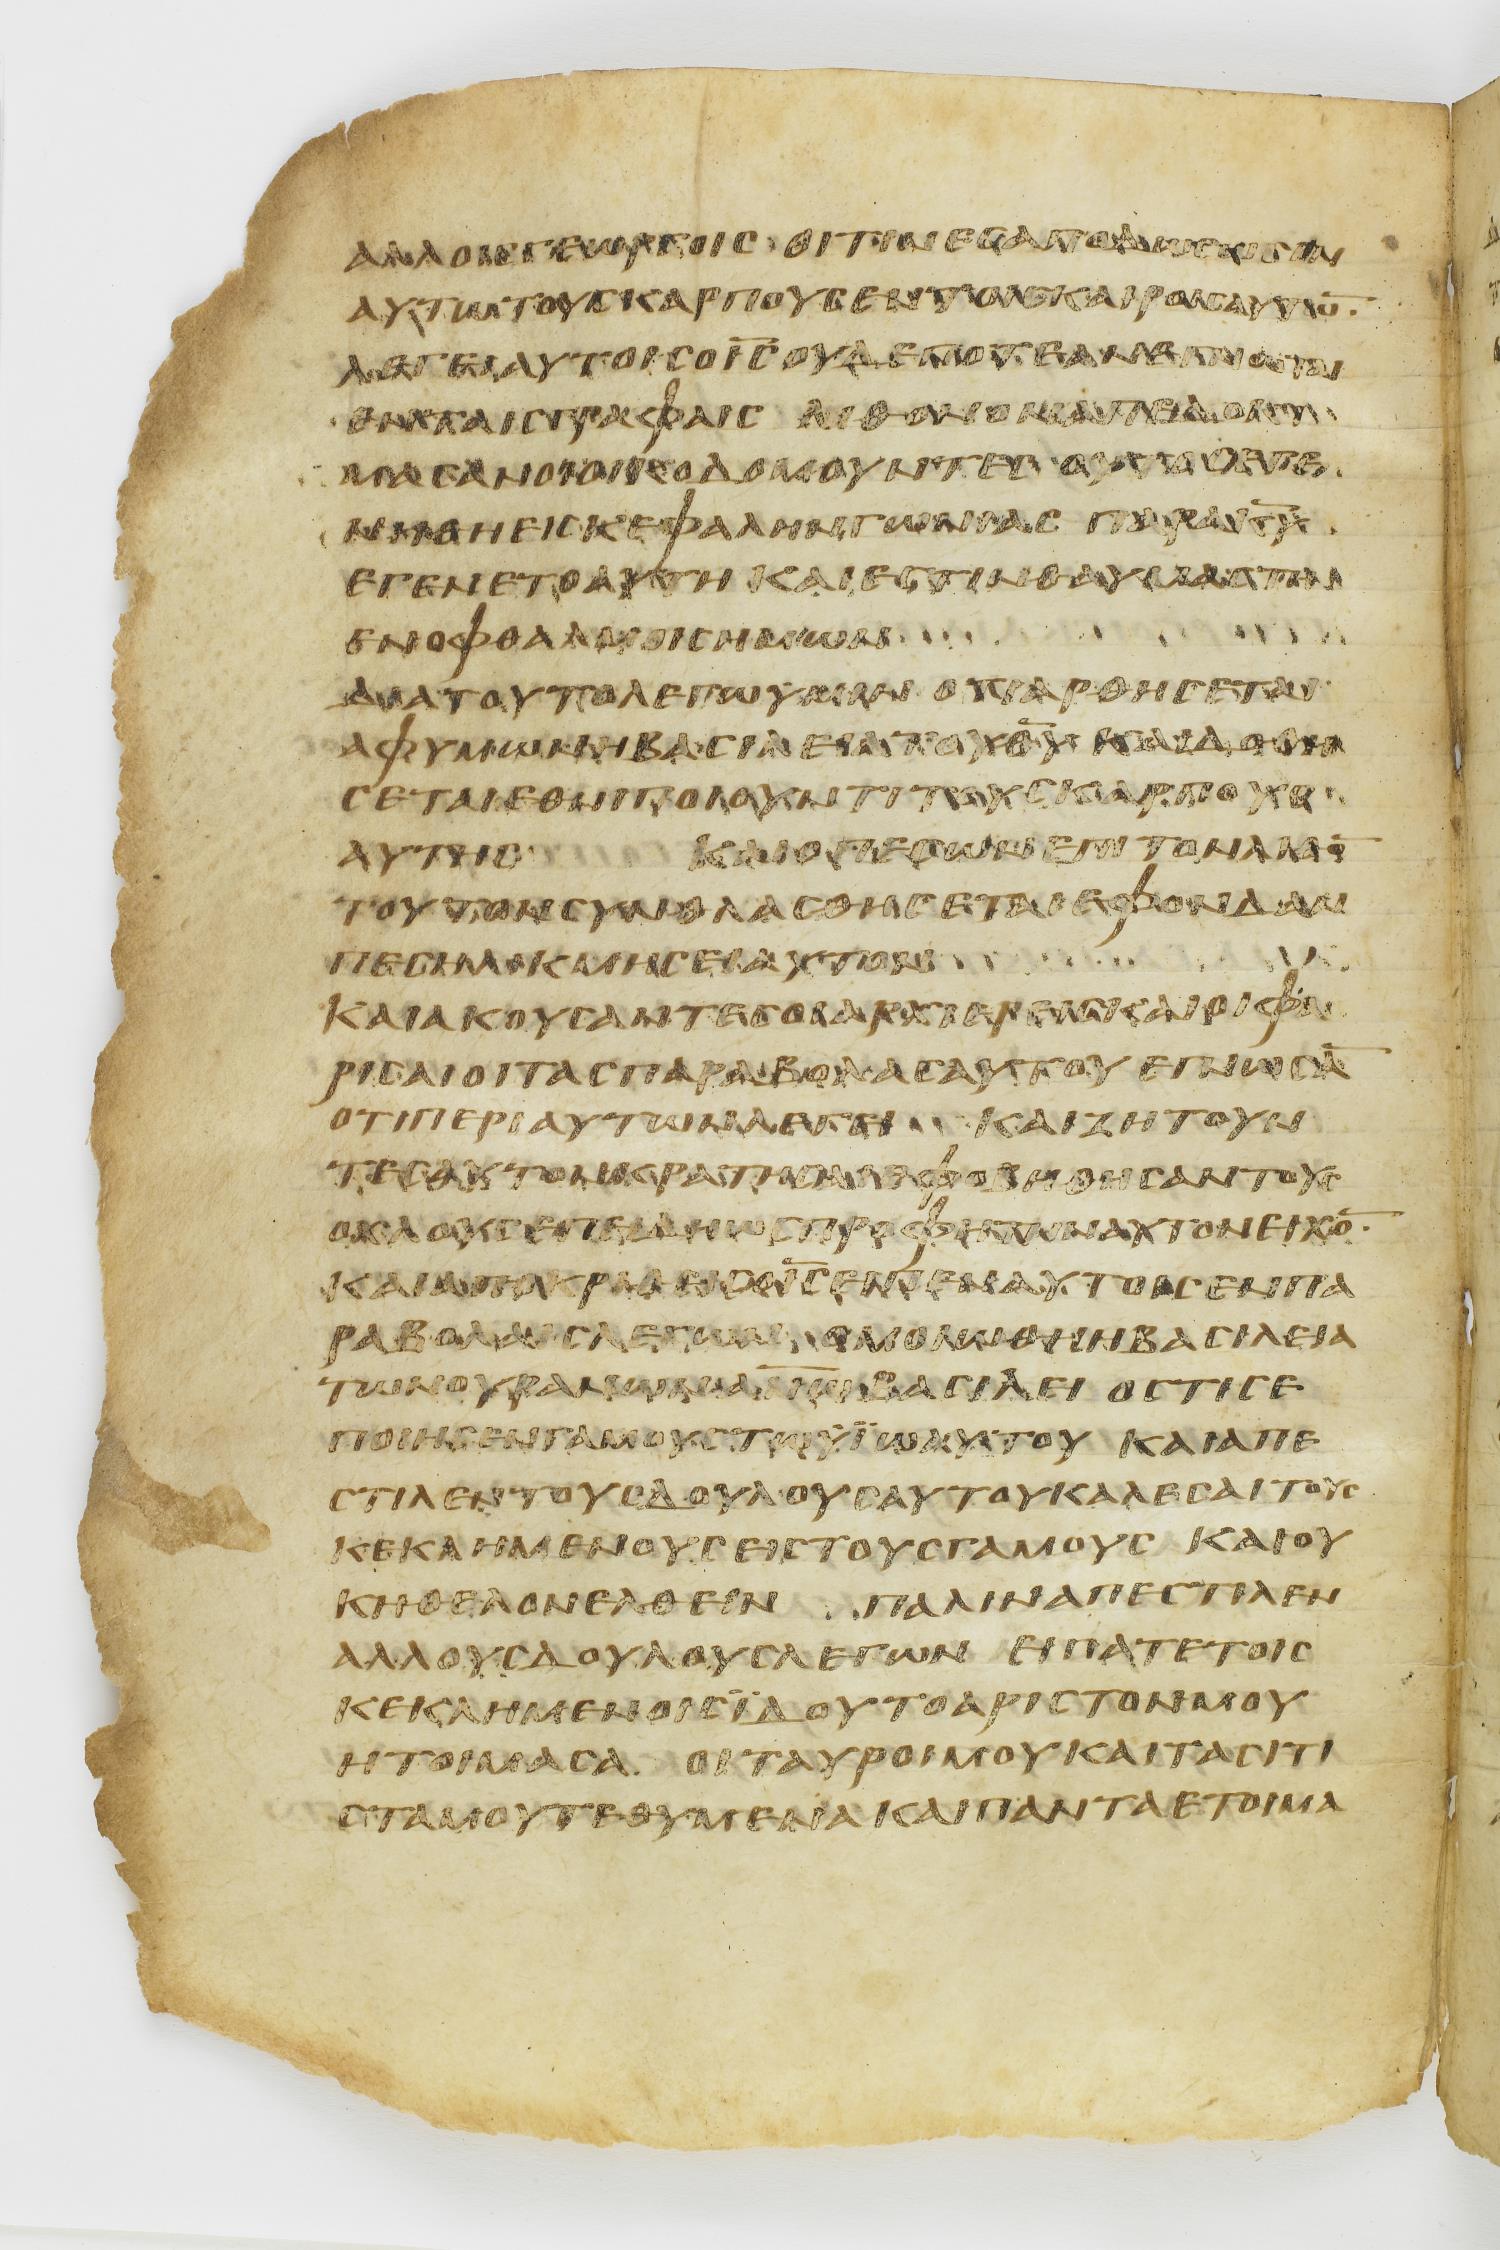 ΑΛΛΟΙCΓΕΩΡΓΟΙC ΟΙΤΙΝΕCΑΠΟΔΩCΟΥCΙΝ
ΑΥΤΩΤΟΥCΚΑΡΠΟΥCΕΝΤΟΙCΚΑΙΡΟΙCΑΥΤΩ̅
ΛΕΓΕΙΑΥΤΟΙCΟΙ̅C̅ΟΥΔΕΠΟΤΕΑΝΕΓΝΩΤΕ
ΕΝΤΑΙCΓΡΑΦΑΙC ΛΙΘΟΝΟΝΑΠΕΔΟΚΙ
ΜΑCΑΝΟΙΟΙΚΟΔΟΜΟΥΝΤΕC ΟΥΤΟCΕΓΕ
ΝΗΘΗΕΙCΚΕΦΑΛΗΝΓΩΝΙΑC ΠΑΡΑΚ̅Υ̅
ΕΓΕΝΕΤΟΑΥΤΗ ΚΑΙΕCΤΙΝΘΑΥΜΑCΤΗ
ΕΝΟΦΘΑΛΜΟΙCΗΜΩΝ
ΔΙΑΤΟΥΤΟΛΕΓΩΥΜΙΝ ΟΤΙΑΡΘΗCΕΤΑΙ
ΑΦΥΜΩΝΗΒΑCΙΛΕΙΑΤΟΥΘ̅Υ̅ ΚΑΙΔΟΘΗ
CΕΤΑΙΕΘΝΙΠΟΙΟΥΝΤΙΤΟΥCΚΑΡΠΟΥC
ΑΥΤΗC ΚΑΙΟΠΕCΩΝΕΠΙΤΟΝΛΙΘΟ̅
ΤΟΥΤΟΝCΥΝΘΛΑCΘΗCΕΤΑΙΕΦΟΝΔΑΝ
ΠΕCΗΛΙΚΜΗCΕΙΑΥΤΟΝ
ΚΑΙΑΚΟΥCΑΝΤΕCΟΙΑΡΧΙΕΡΕΙCΚΑΙΟΙΦΑ
ΡΙCΑΙΟΙΤΑCΠΑΡΑΒΟΛΑCΑΥΤΟΥΕΓΝΩCΑ̅
ΟΤΙΠΕΡΙΑΥΤΩΝΛΕΓΕΙ ΚΑΙΖΗΤΟΥΝ
ΤΕCΑΥΤΟΝΚΡΑΤΗCΑΙΕΦΟΒΗΘΗCΑΝΤΟΥC
ΟΧΛΟΥCΕΠΕΙΔΗΩCΠΡΟΦΗΤΗΝΑΥΤΟΝΕΙΧΟ̅
ΚΑΙΑΠΟΚΡΙΘΕΙCΟΙ̅C̅ΕΙΠΕΝΑΥΤΟΙCΕΝΠΑ
ΡΑΒΟΛΑΙCΛΕΓΩΝ ΟΜΟΙΩΘΗΗΒΑCΙΛΕΙΑ
ΤΩΝΟΥΡΑΝΩΝΑ̅Ν̅Ω̅ΒΑCΙΛΕΙ ΟCΤΙCΕ
ΠΟΙΗCΕΝΓΑΜΟΥCΤΩΥ̅Ι̅Ω̅ΑΥΤΟΥ ΚΑΙΑΠΕ
CΤΙΛΕΝΤΟΥCΔΟΥΛΟΥCΑΥΤΟΥΚΑΛΕCΑΙΤΟΥC
ΚΕΚΛΗΜΕΝΟΥCΕΙCΤΟΥCΓΑΜΟΥC ΚΑΙΟΥ
ΚΗΘΕΛΟΝΕΛΘΕΙΝ ΠΑΛΙΝΑΠΕCΤΙΛΕΝ
ΑΛΛΟΥCΔΟΥΛΟΥCΛΕΓΩΝ ΕΙΠΑΤΕΤΟΙC
ΚΕΚΛΗΜΕΝΟΙCΪΔΟΥΤΟΑΡΙCΤΟΝΜΟΥ
ΗΤΟΙΜΑCΑ ΟΙΤΑΥΡΟΙΜΟΥΚΑΙΤΑCΙΤΙ
CΤΑΜΟΥΤΕΘΥΜΕΝΑΚΑΙΠΑΝΤΑΕΤΟΙΜΑ